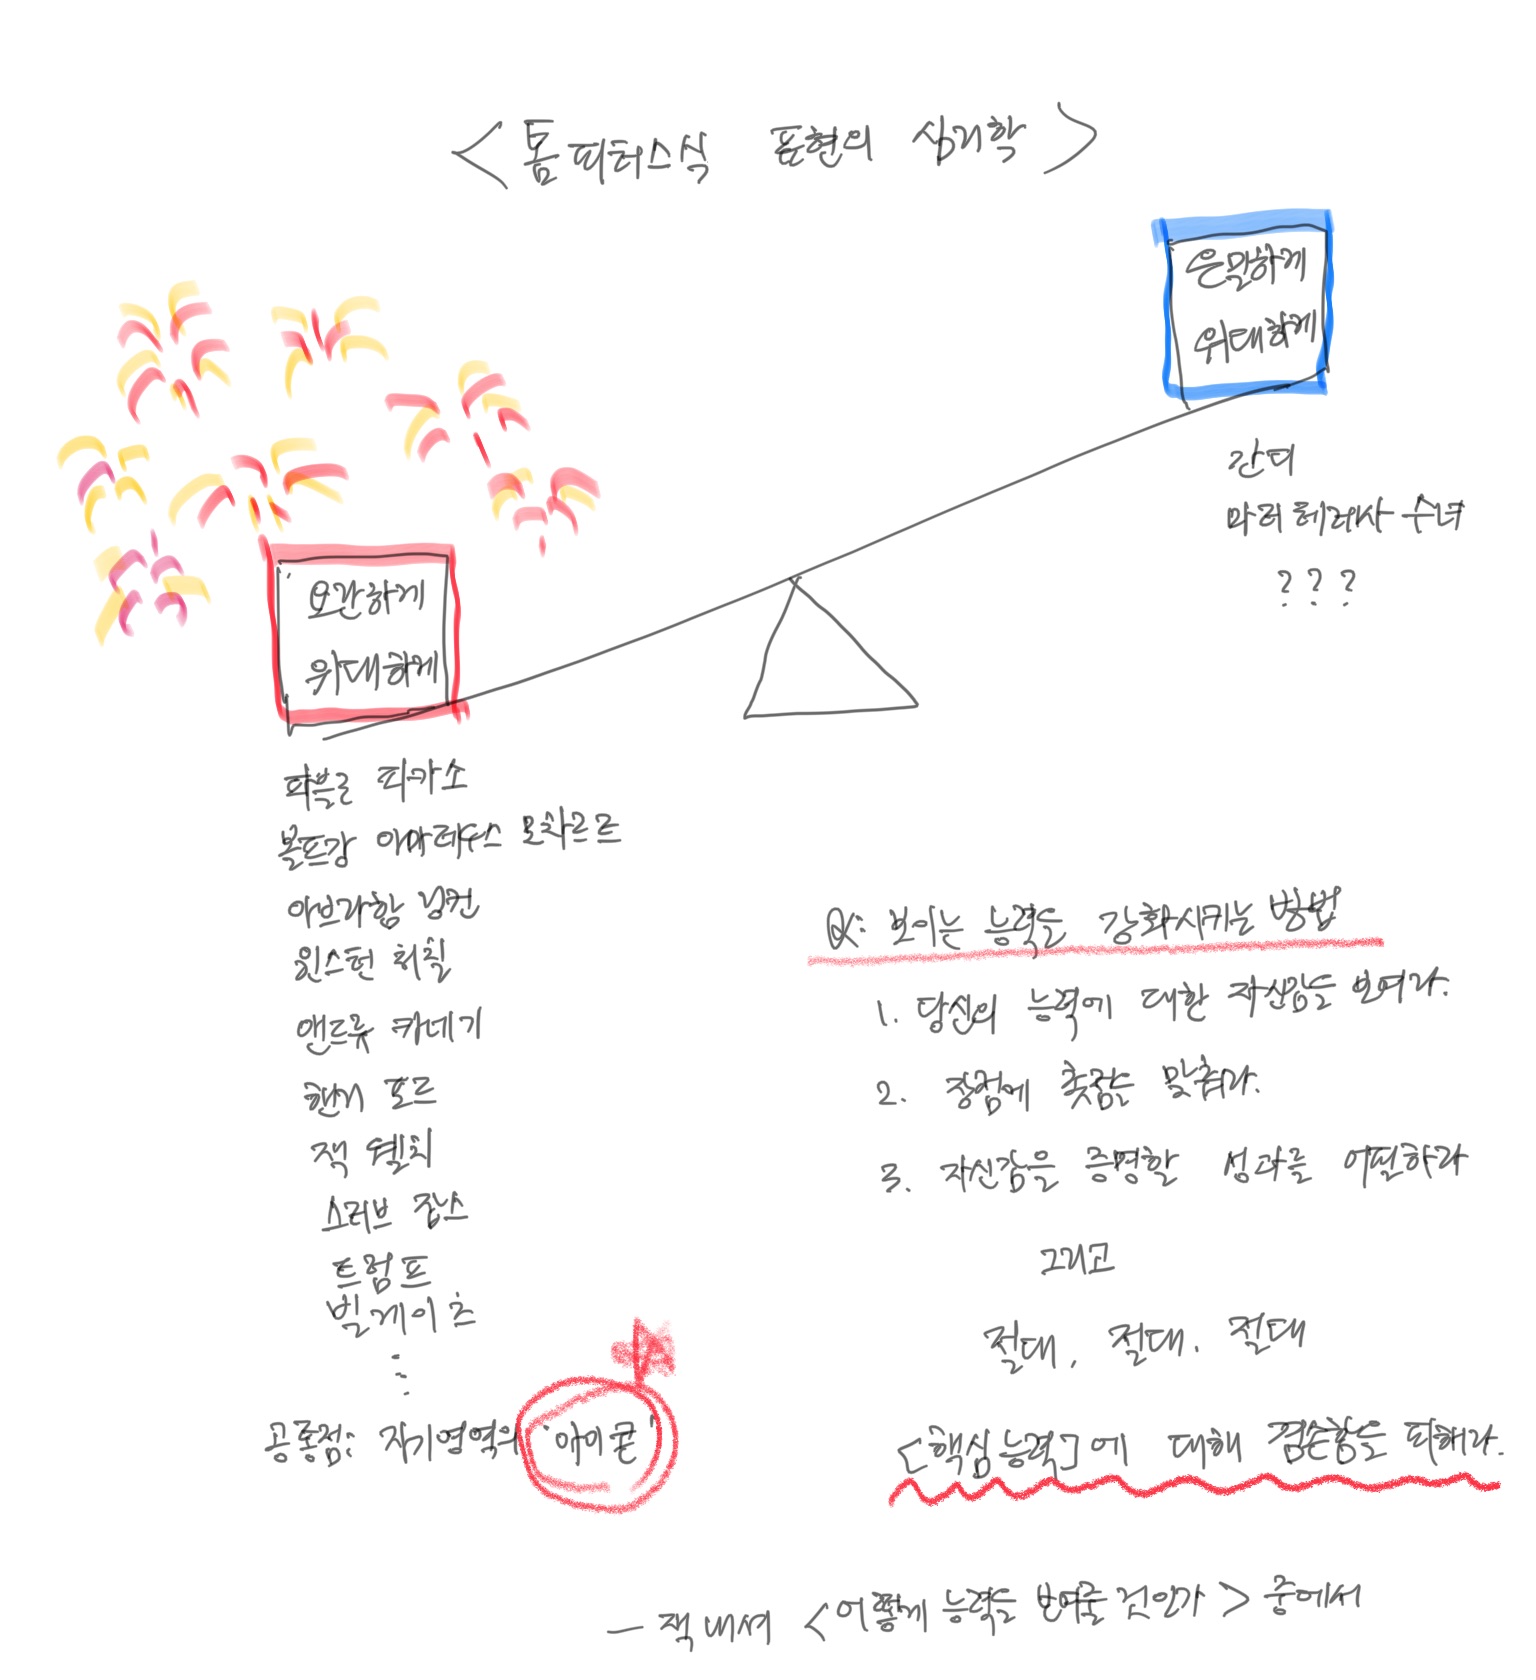 <톰피터스식 표현의 심리학>
은밀하게
위대하게
간디
마더 테레사 수녀
???
오만하게
위대하게
파블로 피카소
볼프강 아마데우스 모차르트
아브라함 링컨
윈스턴 처칠
앤드류 카네기
헨리 포드
잭 웰치
스티브 잡스
트럼프
빌게이츠
공통점: 자기영역의 '아이콘'
Q: 보이는 능력을 강화시키는 방법
1. 당신의 능력에 대한 자신감을 보여라.
2. 장점에 촛점을 맞춰라.
3. 자신감을 증명할 성과를 어필하라
그리고
절대, 절대, 절대
[핵심능력]에 대해 겸손함을 피해라.
- 잭내셔 <어떻게 능력을 보여줄 것인가> 중에서